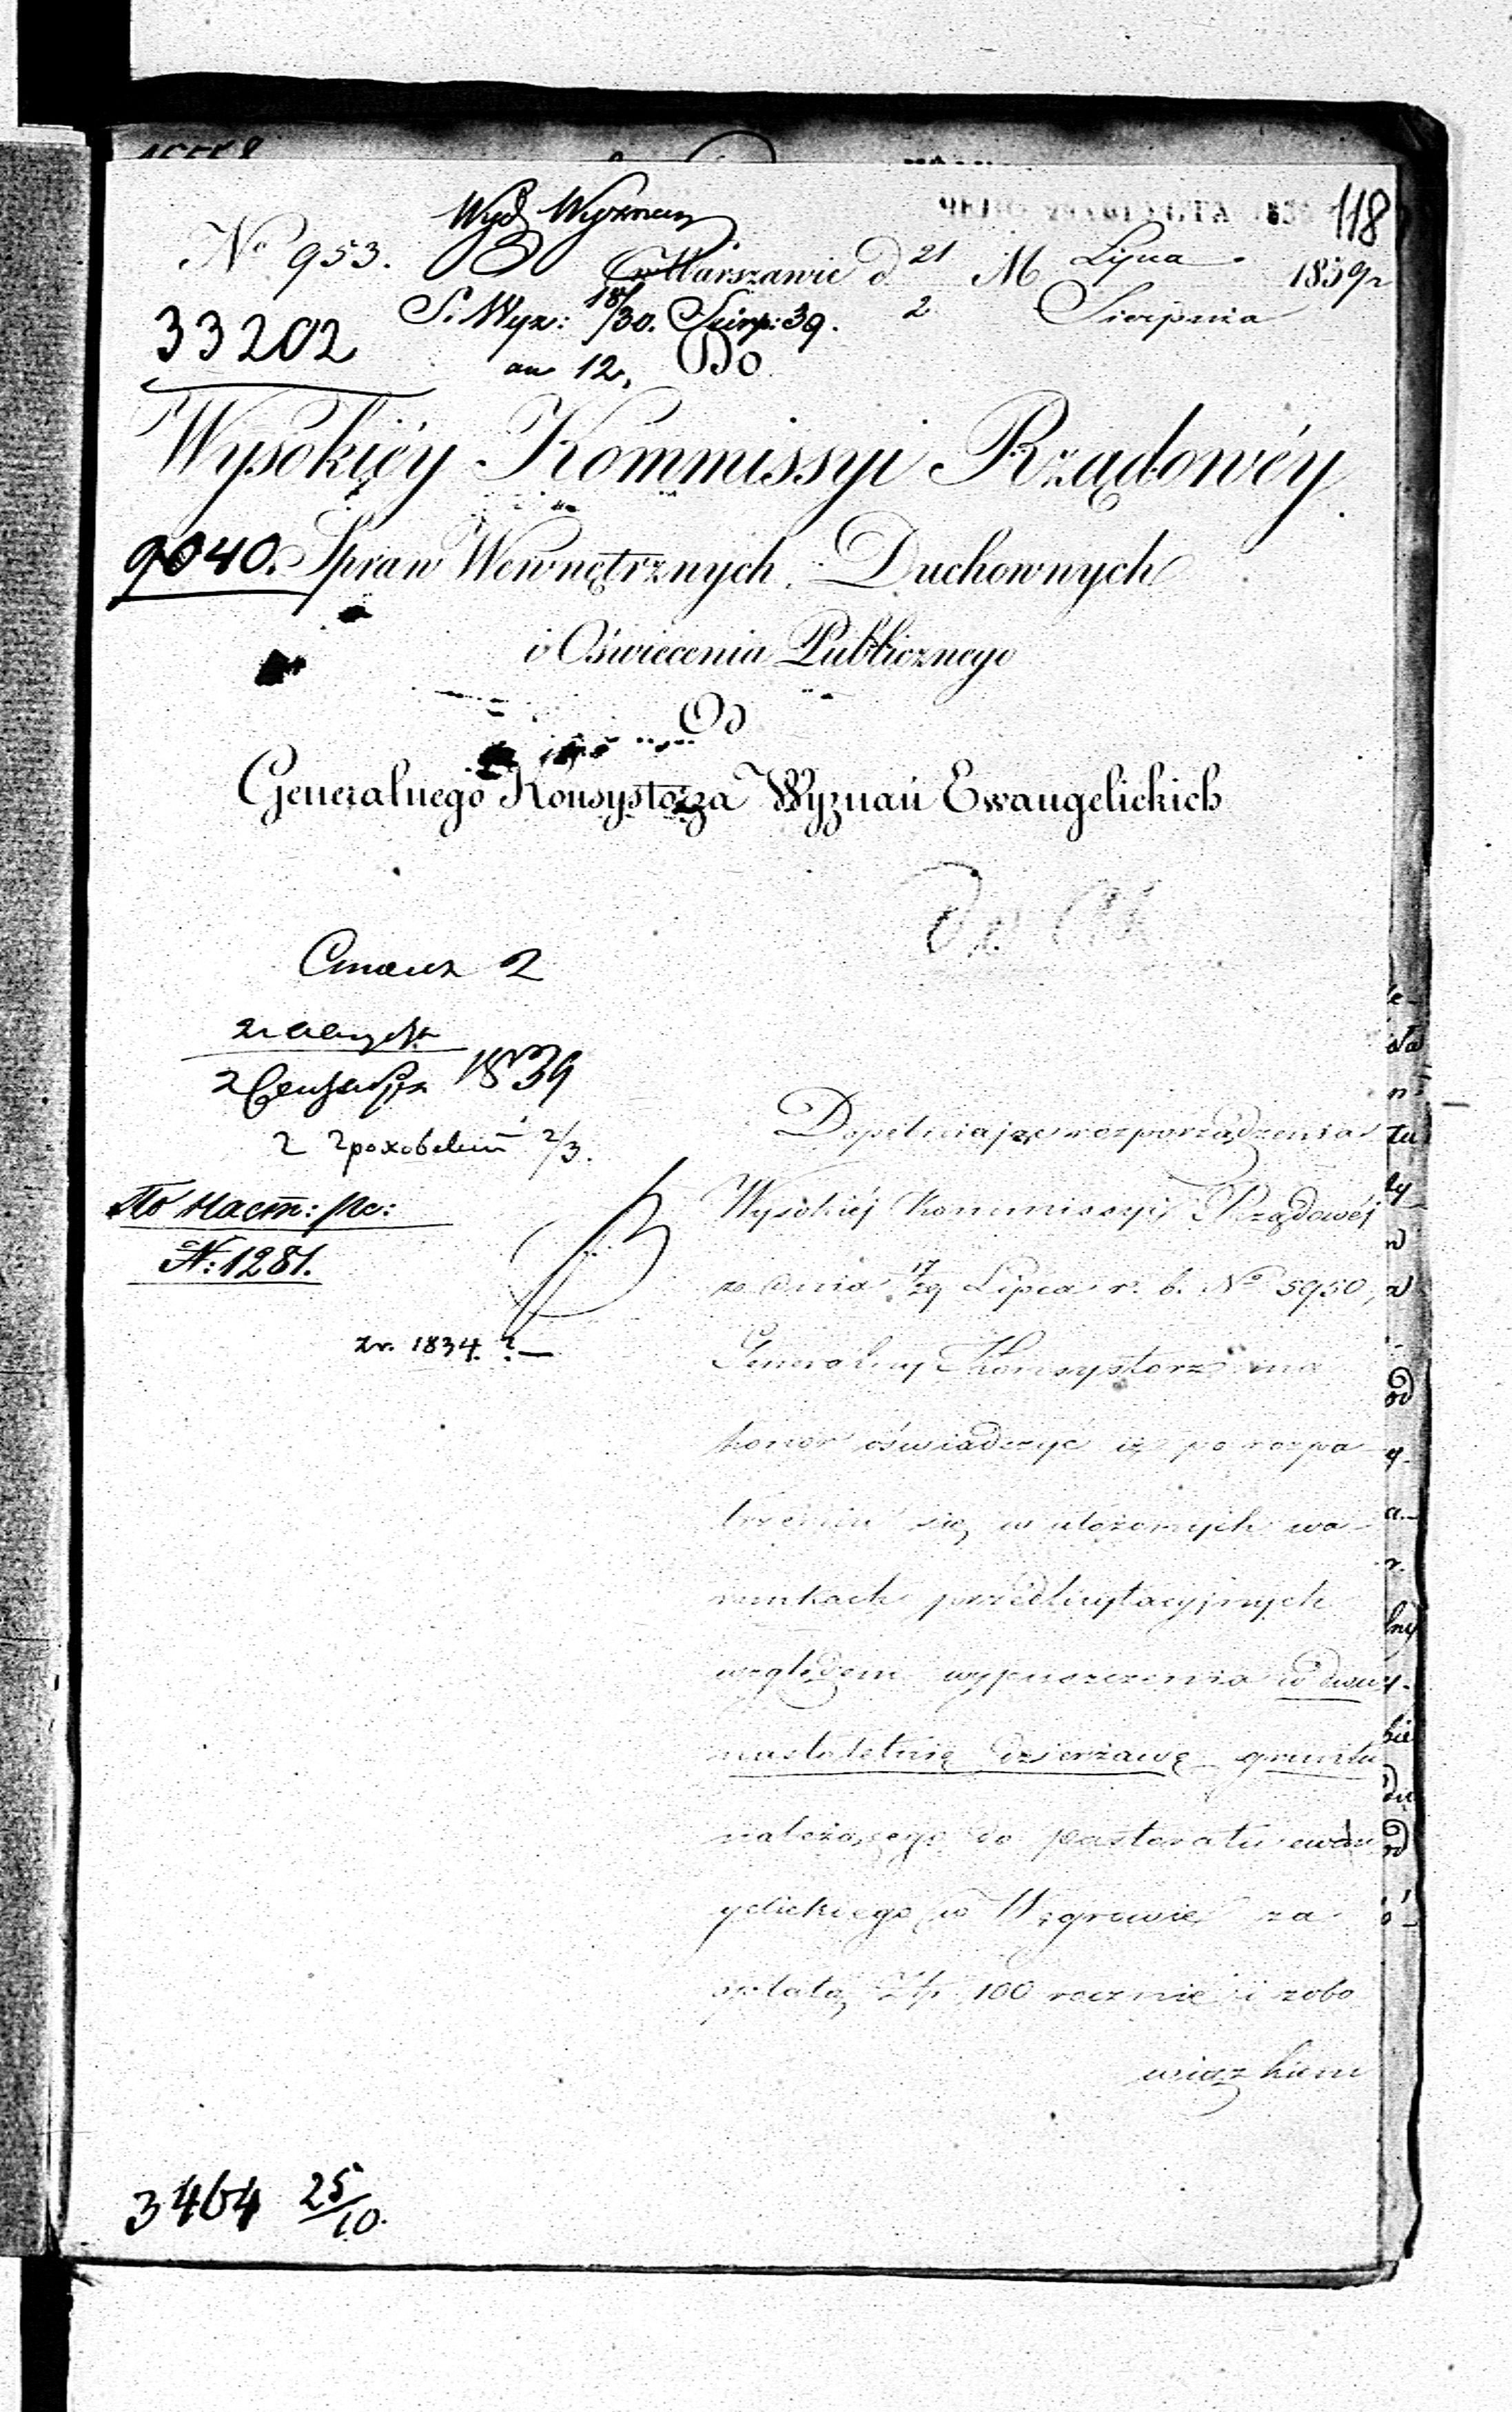 118
Wyd. Wyznań
No 953.
w Warszawie d 21 M Lipca 1839 r
2 Sierpnia
33202
S. Wyz: 18/30. Sierp: 39.
an 12.
Do
Wysokiéy Kommissyi Rządowéy
9040.
Spraw Wewnętrznych Duchownych
i Oświecenia Publicznego
Od
Generalnego Konsystorza Wyznań Ewangelickich
2
1839
2 Сентября
Г Гроховский 2/3.
По наст: рс:
N: 1281.
zr. 1834 ? —
Dopełniając rozporządzenia
Wysokiéj Kommissyi Rządowéj
z dnia 17/29 Lipca r. b. No 5950,
Generalny Konsystorz ma
honor oświadczyć iż po rozpa
trzeniu się w ułożonych wa-
runkach przedlicytacyjnych
względem wypuszczenia w dwu
nastoletnią dzierżawę gruntu
należącego do pastoratu ewan
gelickiego w Węgrowie za
opłatą Złp 100 rocznie i zobo
wiązkiem
3464 25/10.